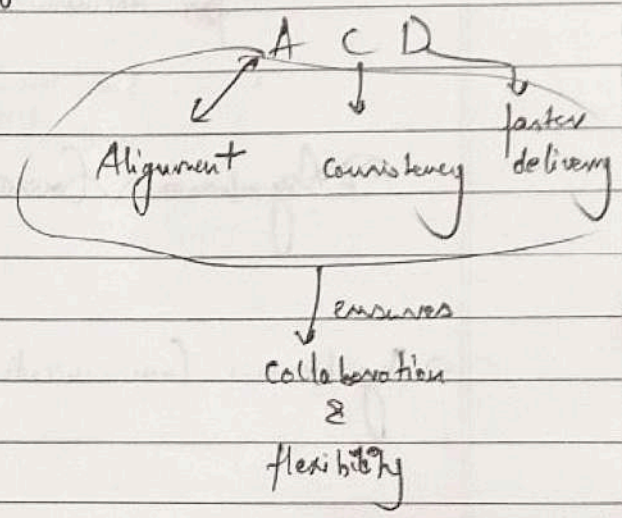 A C D
Alignment consistency faster
delivery
ensures
collaboration
&
flexibility